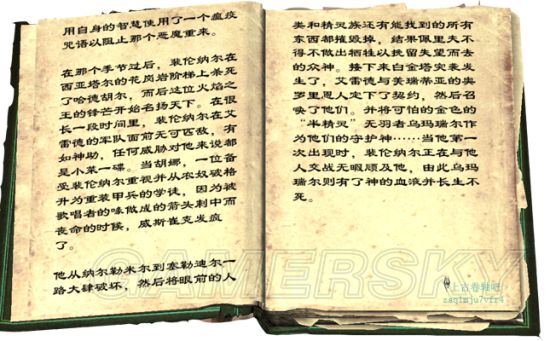 用自身的智慧使用了一个瘟疫
咒语以阻止那个恶魔重来。
在那个季节过后，裴伦纳尔在
西亚塔尔的花岗岩阶梯上杀死
了哈德胡尔，而后这位火焰之
王的锋芒开始名扬天下。在很
长一段时间里，裴伦纳尔在艾
雷德的军队面前无可匹敌，有
如神助，任何威胁对他来说都
是小菜一碟。当胡娜，一位备
受裴伦纳尔重视并从农奴破格
升为重装甲兵的学徒，因为被
歌唱者的喙做成的箭头刺中而
丧命的时候，威斯崔克发疯
了。
他从纳尔勒米尔到塞勒迪尔一
路大肆破坏，然后将眼前的人
类和精灵族还有能找到的所有
东西都摧毁掉，结果佩里夫不
得不做出牺牲以挽留失望而去
的众神。接下来白金塔突袭发
生了，艾雷德与美瑞蒂亚的奥
罗里恩人定下了契约，然后召
唤了他们。并将可怕的金色的
“半精灵”无羽者乌玛瑞尔作
为他们的守护神……当他第一
次出现时，裴伦纳尔正在与他
人交战无暇顾及他，由此乌玛
瑞尔则有了神的血液并长生不
死。
GAMERSKY
上古卷轴吧